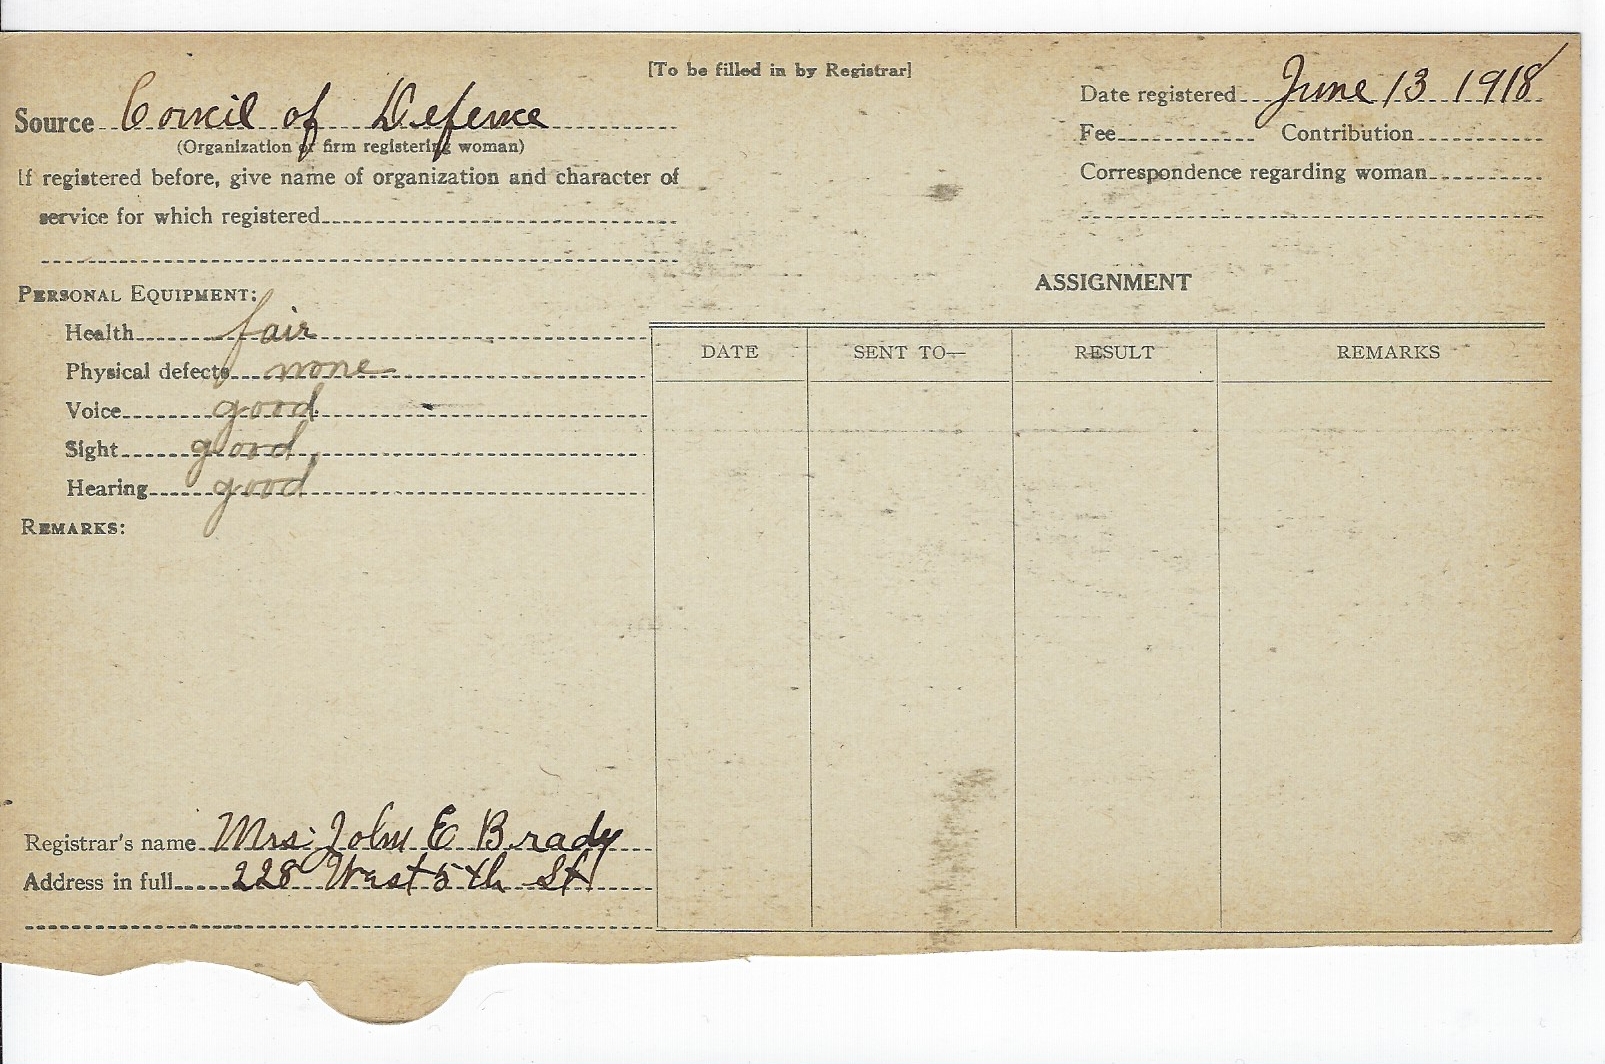 [To be filled in by Registrar]
Source Concil of Defence
(Organization or firm registering woman)
If registered before, give name of organization and character of
service for which registered
Date registered June 13 1918
Fee Contribution
Correspondence regarding woman
PERSONAL EQUIPMENT:
Health fair
Physical defects none
Voice good
Sight good
Hearing good
REMARKS:
ASSIGNMENT
DATE SENT TO— RESULT REMARKS
Registrar's name Mrs. John E Brady
Address in full 228 West 5th St